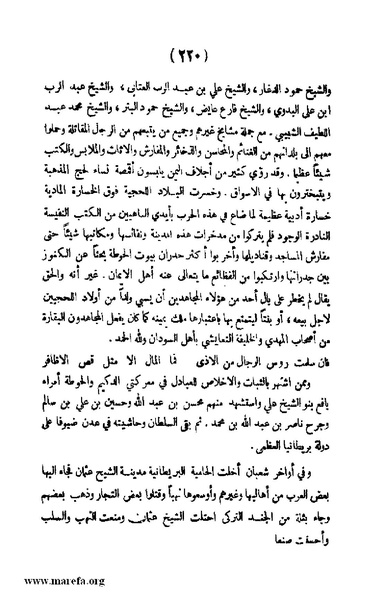 ( ٢٢٠ )
والشيخ حمود الدغار، والشيخ علي بن عبد الرب العتابي، والشيخ عبد الرب
ابن علي البدوي، والشيخ فارع عايض، والشيخ حمود البتر، والشيخ محمد عبد
اللطيف الشهيبي. مع جملة مشايخ غيرهم وجميع من يتبعهم من الرجال المقاتلة وحملوا
معهم الى بلدانهم من الغنائم والمحاسن والذخائر والمفارش والاثاث والملابس والكتب
شيئاً عظيما. وقد رؤي كثير من أجلاف اليمن يلبسون أقمصة نساء لحج المذهبة
ويتبخترون بها في الاسواق. وخسرت البلاد اللحجية فوق الخسارة المادية
خسارة أدبية عظيمة لما ضاع في هذه الحرب بأيدي الناهبين من الكتب النفيسة
النادرة الوجود فلم يتركوا من مدخرات هذه المدينة ونفائسها ومكاتبها شيئاً حتى
مفارش المساجد وقناديلها وأخربوا أكثر جدران بيوت الحوطة بحثاً عن الكنوز
بين جدرانها وارتكبوا من الفظائع ما يتعالى عنه أهل الايمان. غير أنه والحق
يقال لم يخطر على بال أحد من هؤلاء المجاهدين أن يسبي ولداً من أولاد اللحجيين
لاجل بيعه، أو بنتاً ليتمتع بها باعتبارها ملك يمينه كما كان يفعل المجاهدون البقارة
من أصحاب المهدي والخليفة التعايشي بأهل السودان ولله الحمد.
فان سلمت روس الرجال من الاذى فما المال الا مثل قص الاظافر
وممن اشتهر بالثبات والاخلاص للعبادل في معركتي الدكيم والحوطة أمراء
يافع بنو الشيخ علي واستشهد منهم محسن بن عبد الله وحسين بن علي بن سالم
وجرح ناصر بن عبد الله بن محمد. ثم بقى السلطان وحاشيته في عدن ضيوفا على
دولة بريطانيا العظمى.
وفي أواخر شعبان أخلت الحامية البريطانية مدينة الشيخ عثمان فجاء اليها
بعض العرب من أهاليها وغيرهم وأوسعوها نهباً وقتلوا بعض التجار وذهب بعضهم
وجاء بثلة من الجند التركى احتلت الشيخ عثمان ومنعت النهب والسلب
www.marefa.org